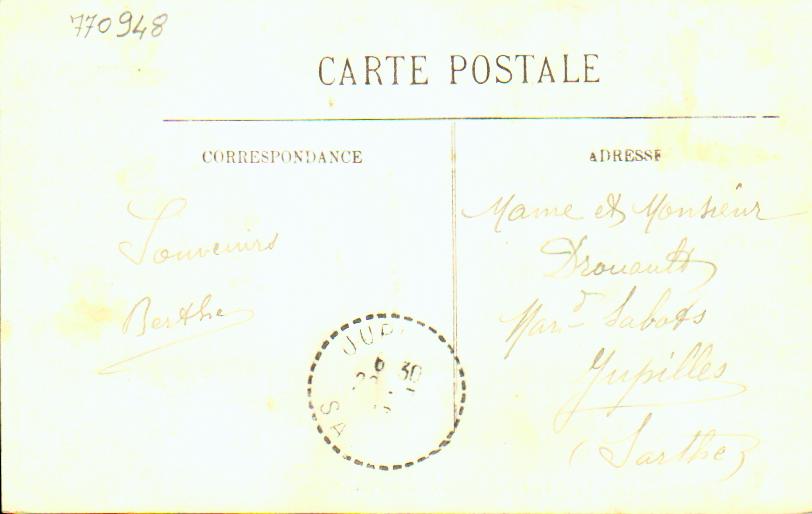 770948
CARTE POSTALE
CORRESPONDANCE
ADRESSE
Souvenirs
Berthe
Mame et Monsieur
Drouault
Mard Sabots
Jupilles
(Sarthe)
JUPI
6 30
SA